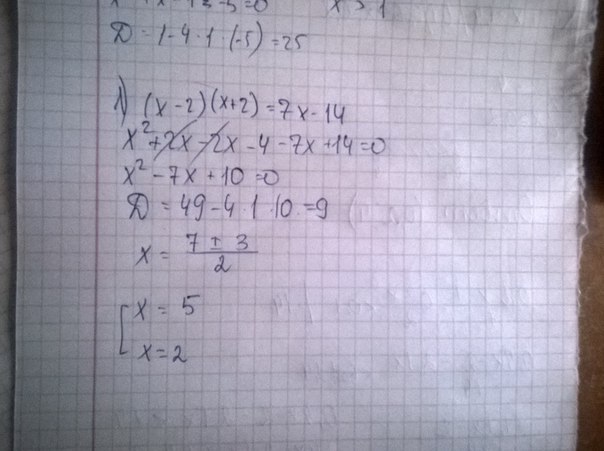 x > 1
D = 1 - 4 · 1 · (-5) = 25
1) (x - 2)(x + 2) = 7x - 14
x² + 2x - 2x - 4 - 7x + 14 = 0
x² - 7x + 10 = 0
D = 49 - 4 · 1 · 10 = 9
x = (7 ± 3) / 2
[ x = 5
x = 2